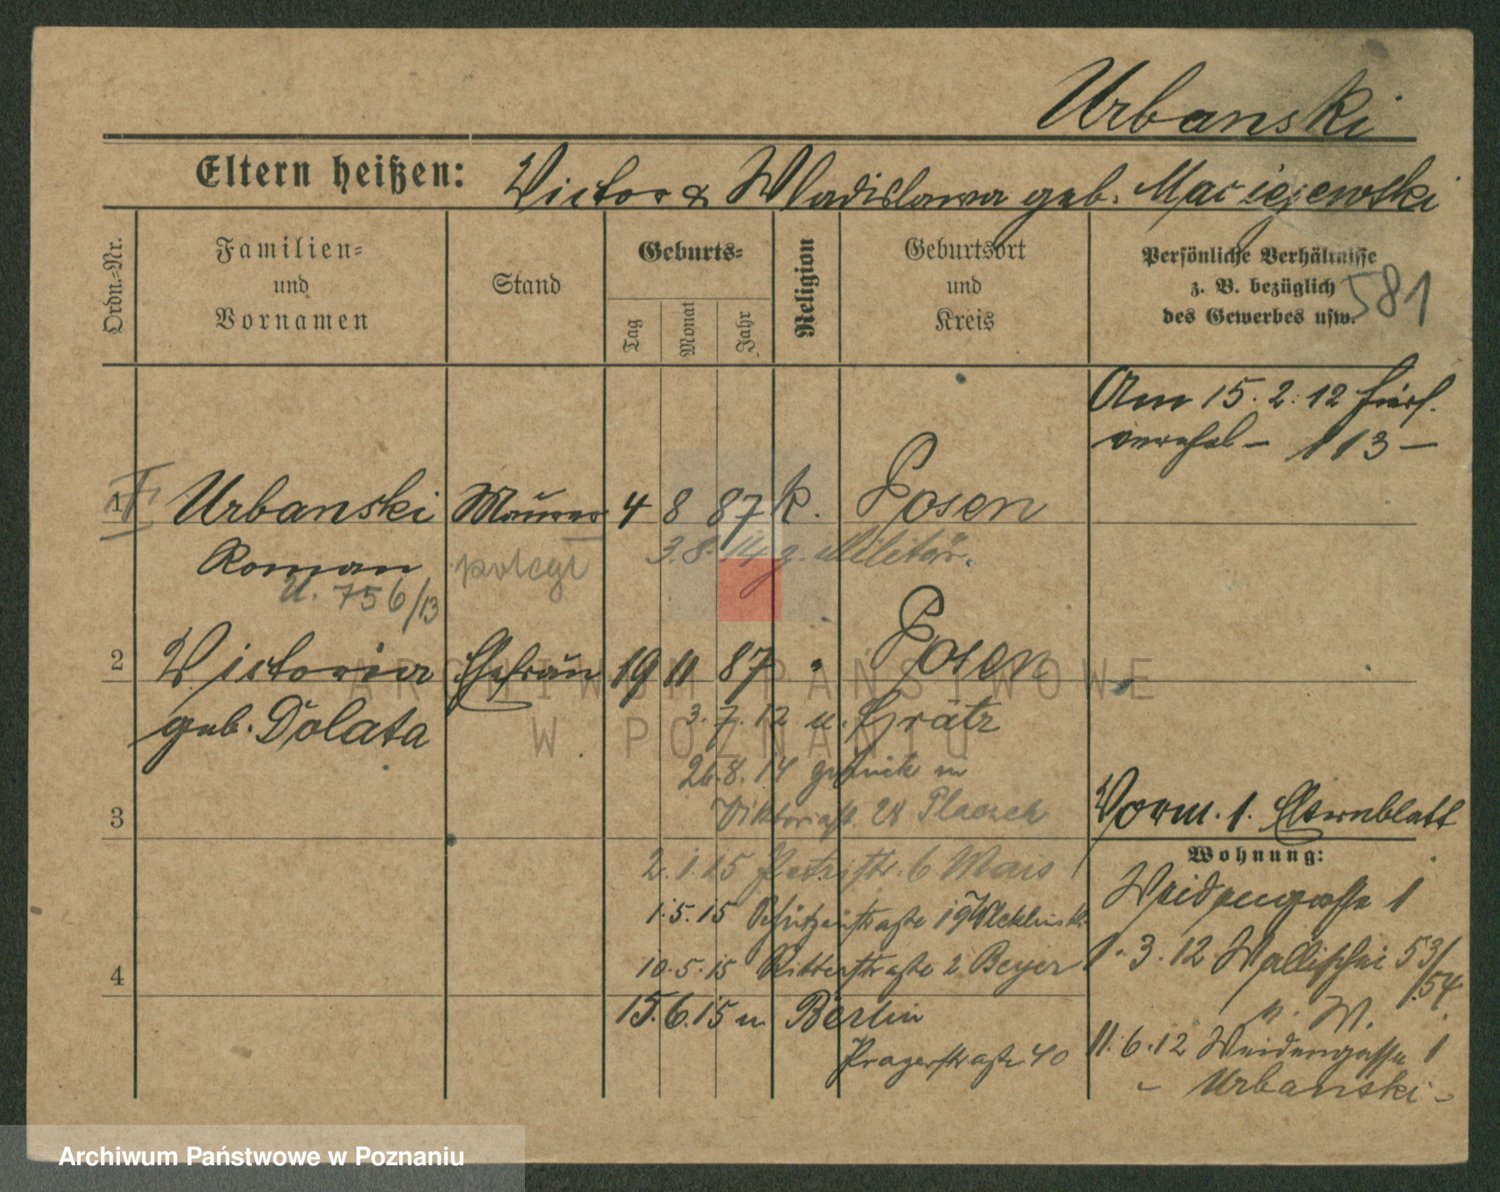 Urbanski
Eltern heißen: Victor & Wladislawa geb. Maciejewski
Ordn.-Nr.
Familien- und Vornamen
Stand
Geburts-
Tag
Monat
Jahr
Religion
Geburtsort und Kreis
Persönliche Verhältnisse z. B. bezüglich des Gewerbes usw.
581
Am 15. 2. 12 hier
113 –
1 Urbanski Maurer 4 8 87 k. Posen
Roman poległ 3.8.14 z. Militär.
U. 756/13
2 Victoria Ehefrau 19 11 87 " Posen
geb. Dolata 3. 7. 12 u. Grätz
26.8.14 zurück in
3 Viktoriastr. 28
Vorm. 1. Elternblatt
Wohnung:
2.1.15 6 Mais
Weidengasse 1
1.5.15 Schützenstraße 19
1. 3. 12 Wallischei 53/54
b. W.
4 10.5.15 Ritterstraße 2 Beyer
15.6.15 u. Berlin
Pragerstraße 40
11. 6. 12 Weidengasse 1
– Urbanski –
ARCHIWUM PAŃSTWOWE
W POZNANIU
Archiwum Państwowe w Poznaniu